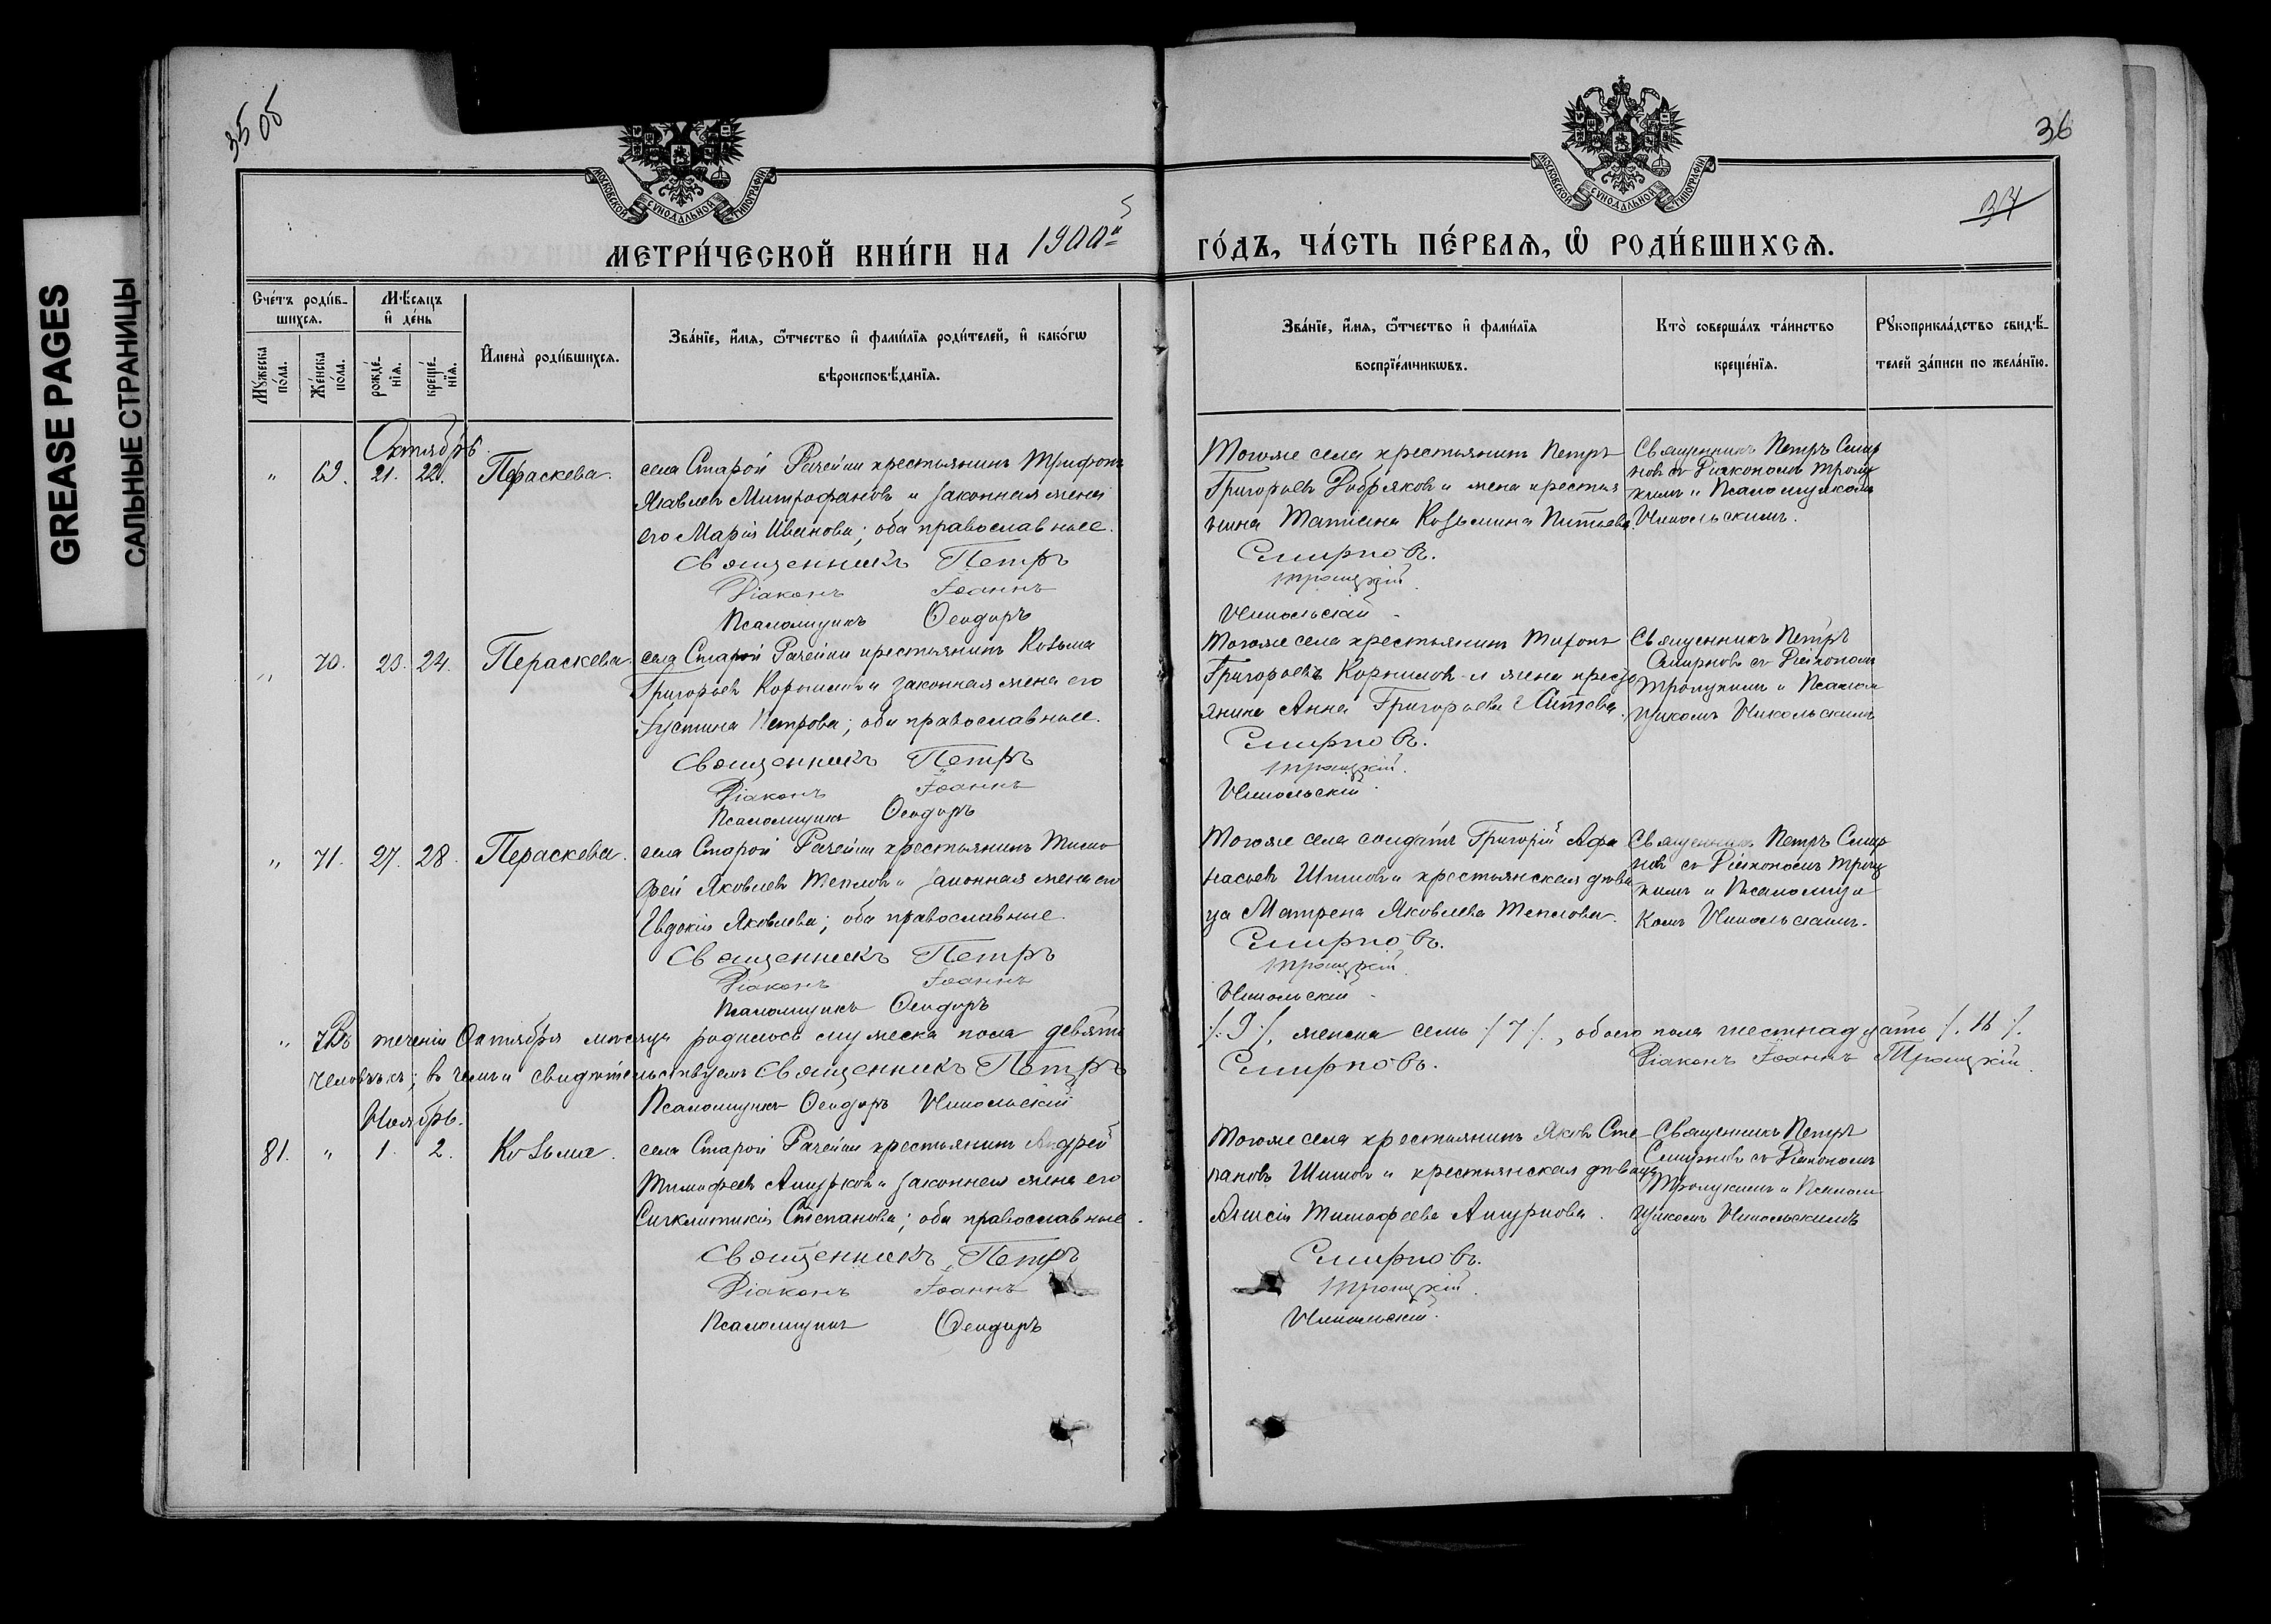 GREASE PAGES
САЛЬНЫЕ СТРАНИЦЫ
35 об
36
34
МОСКОВСКОЙ СѴНОДАЛЬНОЙ ТИПОГРАФІИ
МОСКОВСКОЙ СѴНОДАЛЬНОЙ ТИПОГРАФІИ
МЕТРИ́ЧЕСКОЙ КНИ́ГИ НА 1900й
ГО́ДЪ, ЧА́СТЬ ПЕ́РВАѦ, Ѡ РОДИ́ВШИХСѦ.
Сче́тъ роди́в-
шихсѧ.
Мꙋ́жеска
по́ла.
Же́нска
по́ла.
Мѣ́сѧцъ
и҆ де́нь
рожде́-
нїѧ.
креще́-
нїѧ.
И҆мена̀ роди́вшихсѧ.
Зва́нїе, и҆́мѧ, ѻ҆́тчество и҆ фами́лїѧ роди́телей, и҆ како́гѡ
вѣроисповѣ́данїѧ.
Зва́нїе, и҆́мѧ, ѻ҆́тчество и҆ фами́лїѧ
воспрїе́мчикѡвъ.
Кто̀ соверша́лъ та́инство
креще́нїѧ.
Рꙋкоприкла́дство свидѣ́-
телей за́писи по жела́нїю.
Октябрь.
" 69. 21. 22. Параскева.
села Старой Рачейки крестьянинъ Трифонъ
Яковлевъ Митрофановъ и законная жена
его Марія Иванова; оба православные.
Священникъ Петръ
Діаконъ Іоаннъ
Псаломщикъ Ѳеодоръ
Тогоже села крестьянинъ Петръ
Григорьевъ Добряковъ и жена крестья
нина Татіана Козьмина
Смирновъ.
Троицкій.
Никольскій
Священникъ Петръ Смир
новъ съ Діакономъ Троиц
кимъ и Псаломщикомъ
Никольскимъ.
" 70. 23. 24. Параскева.
села Старой Рачейки крестьянинъ Козьма
Григорьевъ Корниловъ и законная жена его
Іустина Петрова; оба православные.
Священникъ Петръ
Діаконъ Іоаннъ
Псаломщикъ Ѳеодоръ
Тогоже села крестьянинъ
Григорьевъ Корниловъ и жена кресть
янина Анна Григорьева
Смирновъ.
Троицкій.
Никольскій
Священникъ Петръ
Смирновъ съ Діакономъ
Троицкимъ и Псалом
щикомъ Никольскимъ
" 71. 27. 28. Параскева.
села Старой Рачейки крестьянинъ Тимо
фей Яковлевъ Тепловъ и законная жена его
Евдокія Яковлева; оба православные.
Священникъ Петръ
Діаконъ Іоаннъ
Псаломщикъ Ѳеодоръ
Тогоже села солдатъ Григорій Афа
насьевъ Шишовъ и крестьянская дѣви
ца Матрена Яковлева Теплова.
Смирновъ.
Троицкій.
Никольскій
Священникъ Петръ Смир
новъ съ Діакономъ Троиц
кимъ и Псаломщи
комъ Никольскимъ.
Въ теченіи Октября мѣсяца родилось мужеска пола девять
/. 9 /., женска семь /. 7 /., обоего пола шестнадцать /. 16 /.
человѣкъ; въ чемъ и свидѣтельствуемъ Священникъ Петръ
Смирновъ.
Діаконъ Іоаннъ Троицкій.
Псаломщикъ Ѳеодоръ Никольскій
Ноябрь.
81. " 1. 2. Козьма.
села Старой Рачейки крестьянинъ Андрей
Тимофеевъ и законная жена его
Сигклитикія Степанова; оба православные.
Священникъ Петръ
Діаконъ Іоаннъ
Псаломщикъ Ѳеодоръ
Тогоже села крестьянинъ Яковъ Сте
пановъ Шишовъ и крестьянская дѣвица
Тимофеева
Смирновъ.
Троицкій.
Никольскій.
Священникъ Петръ
Смирновъ съ Діакономъ
Троицкимъ и Псалом
щикомъ Никольскимъ